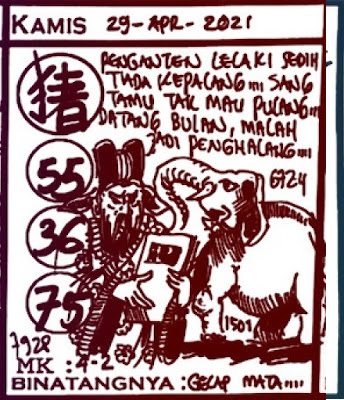 KAMIS 29-APR-2021
猪
PENGANTEN LELAKI SEDIH
TIADA KEPALANG.... SANG
TAMU TAK MAU PULANG....
DATANG BULAN, MALAH
JADI PENGHALANG....
55
6924
36
75
1501
7928
MK : 4-2
BINATANGNYA : GELAP MATA....